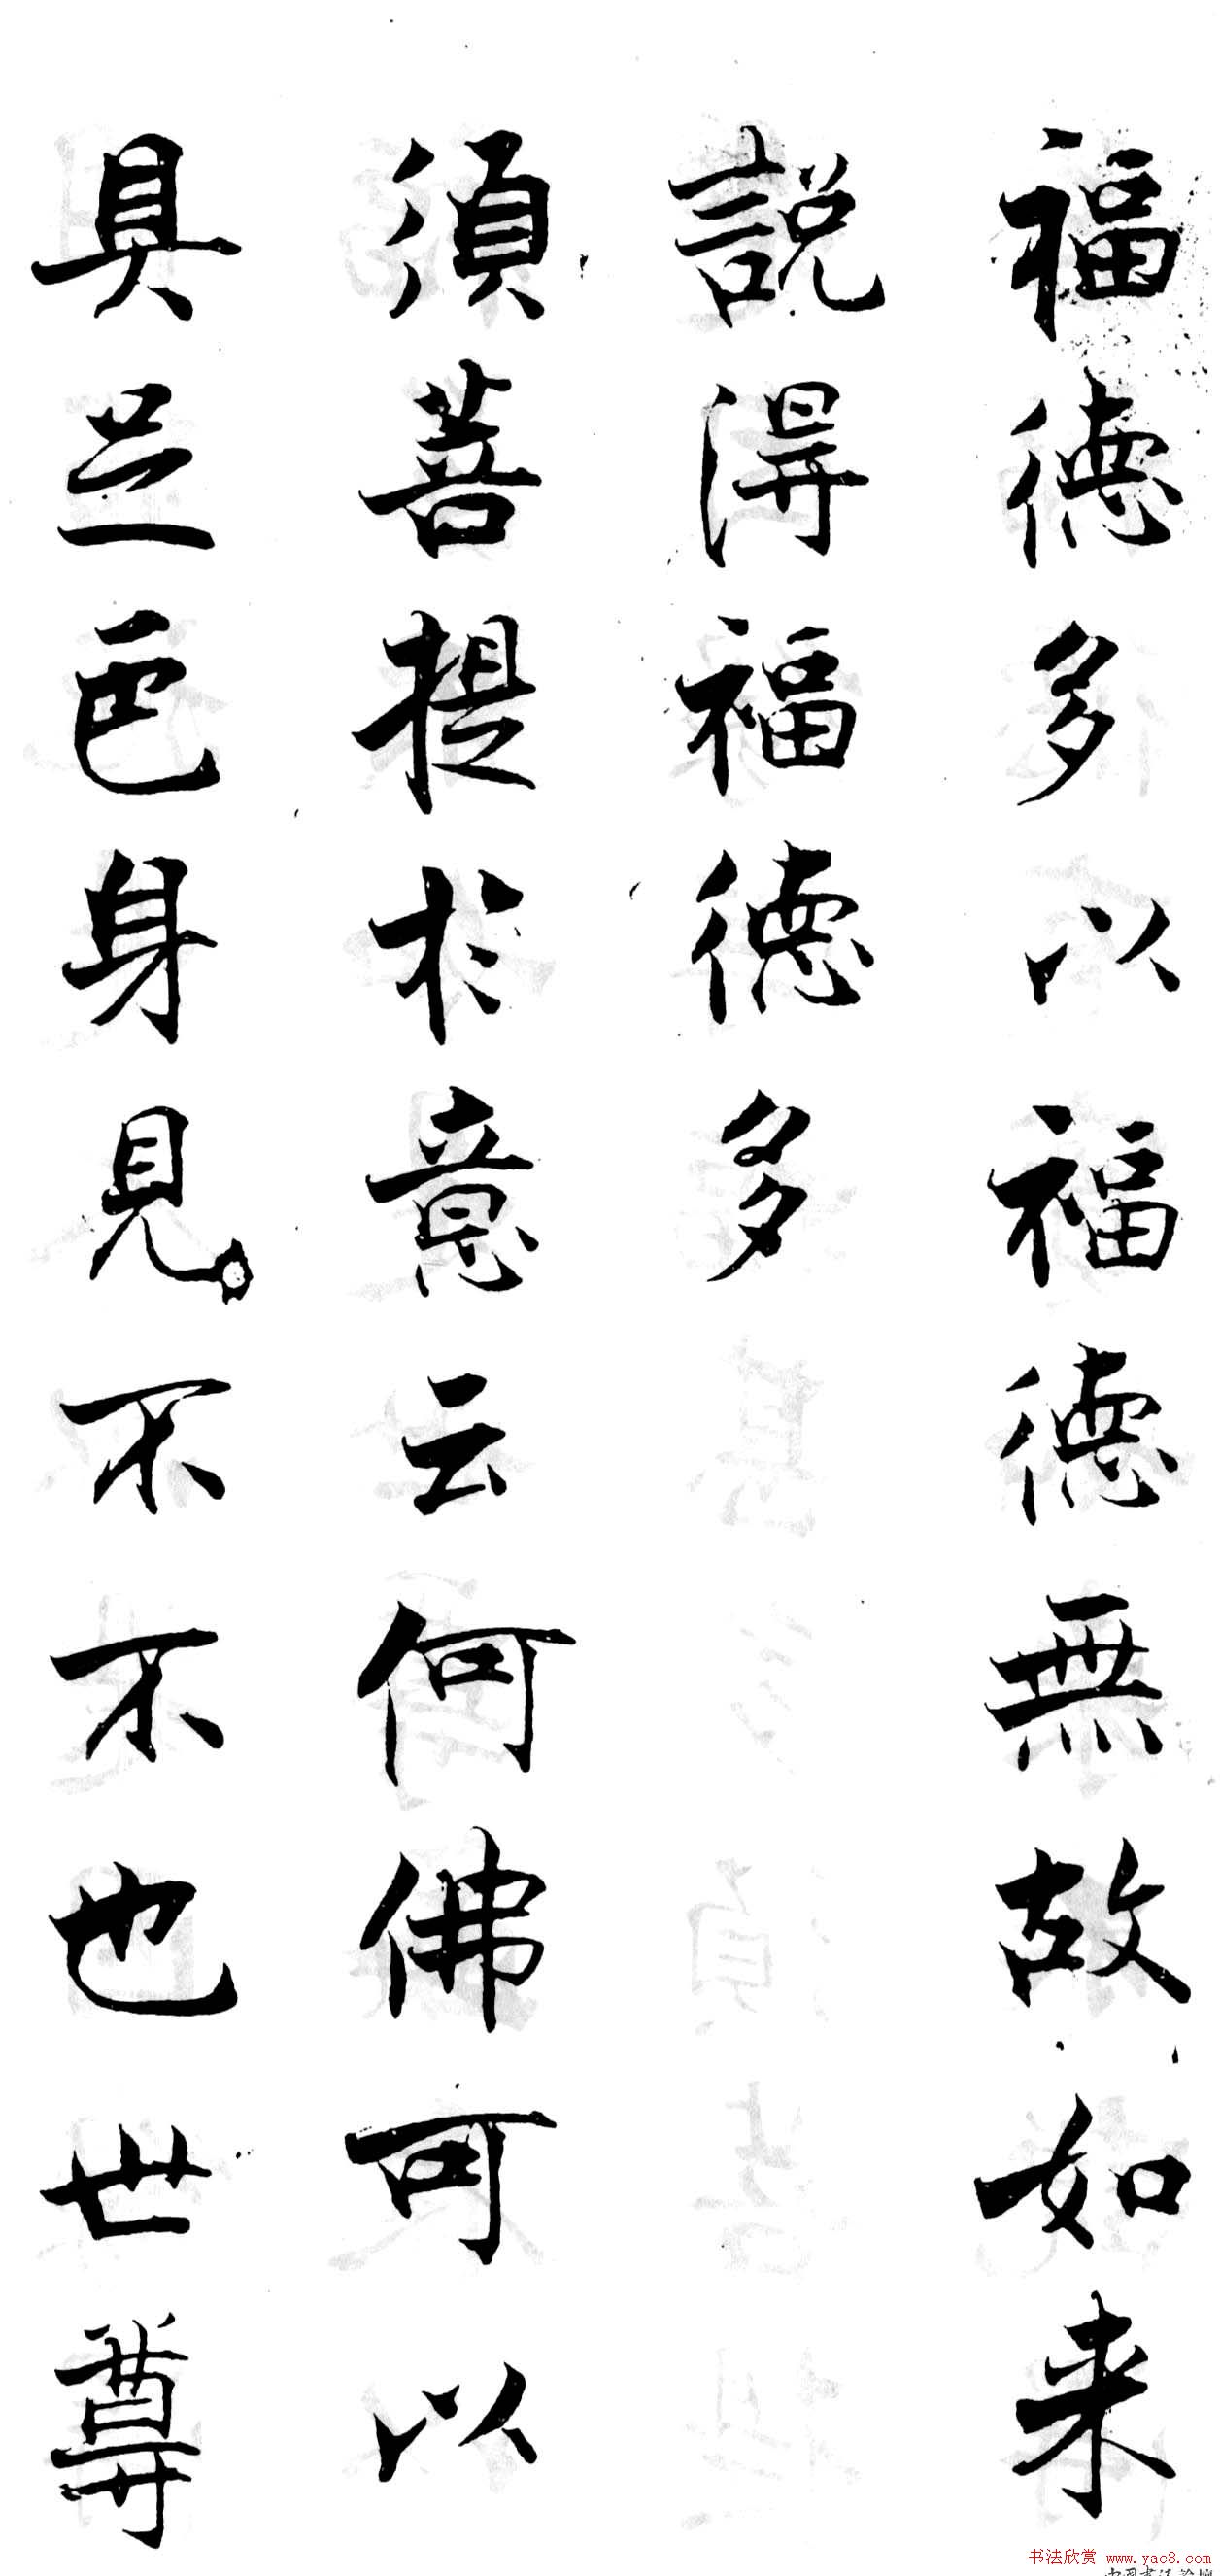 福德多以福德無故如来
說得福德多
須菩提於意云何佛可以
具足色身見不不也世尊
书法欣赏 www.yac8.com